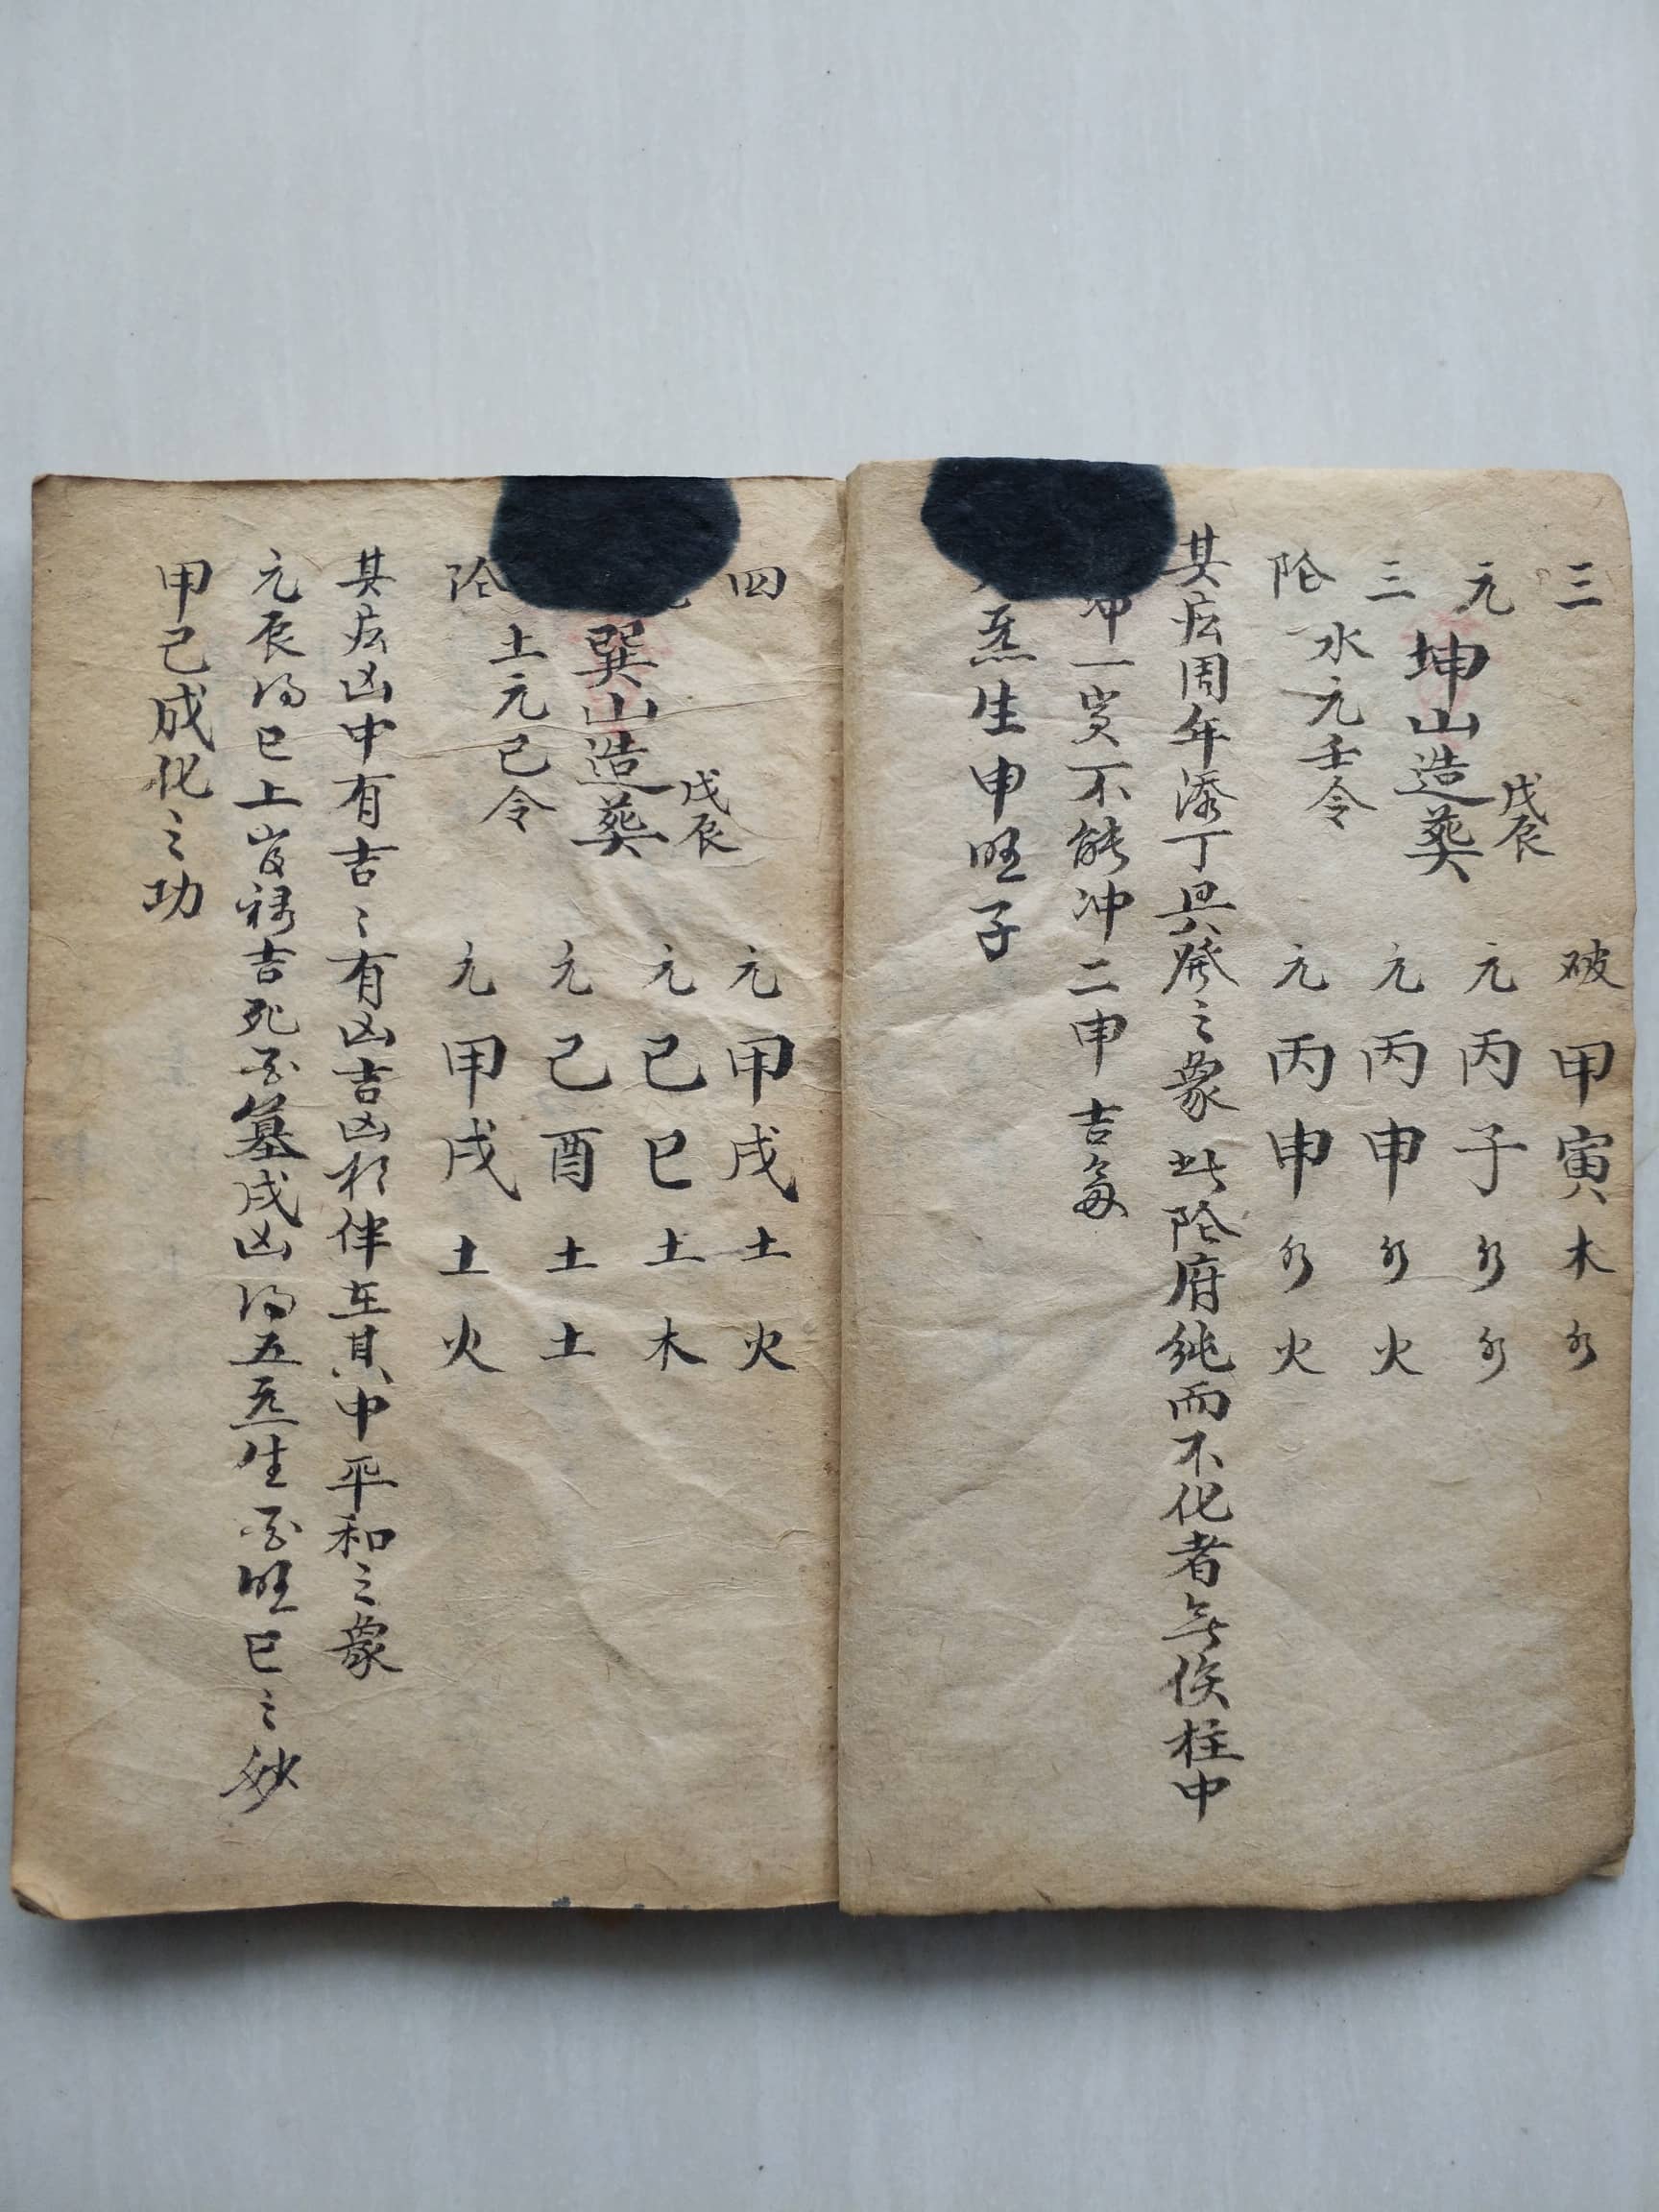 三
元
三
陰
坤山造葬
戊辰
水元壬令
破甲寅木水
元丙子水水
元丙申水火
元丙申水火
其法周年添丁具發之象 此陰府純而不化者無俟柱中
一寅不能冲二申 吉多
生申旺子
四
陰
巽山造葬
戊辰
土元己令
元甲戌土火
元己巳土木
元己酉土土
元甲戌土火
其法凶中有吉〻有凶吉凶相伴在其中平和之象
元辰得巳上官祿吉死至墓戌凶得五炁生至旺巳之妙
甲己成化之功